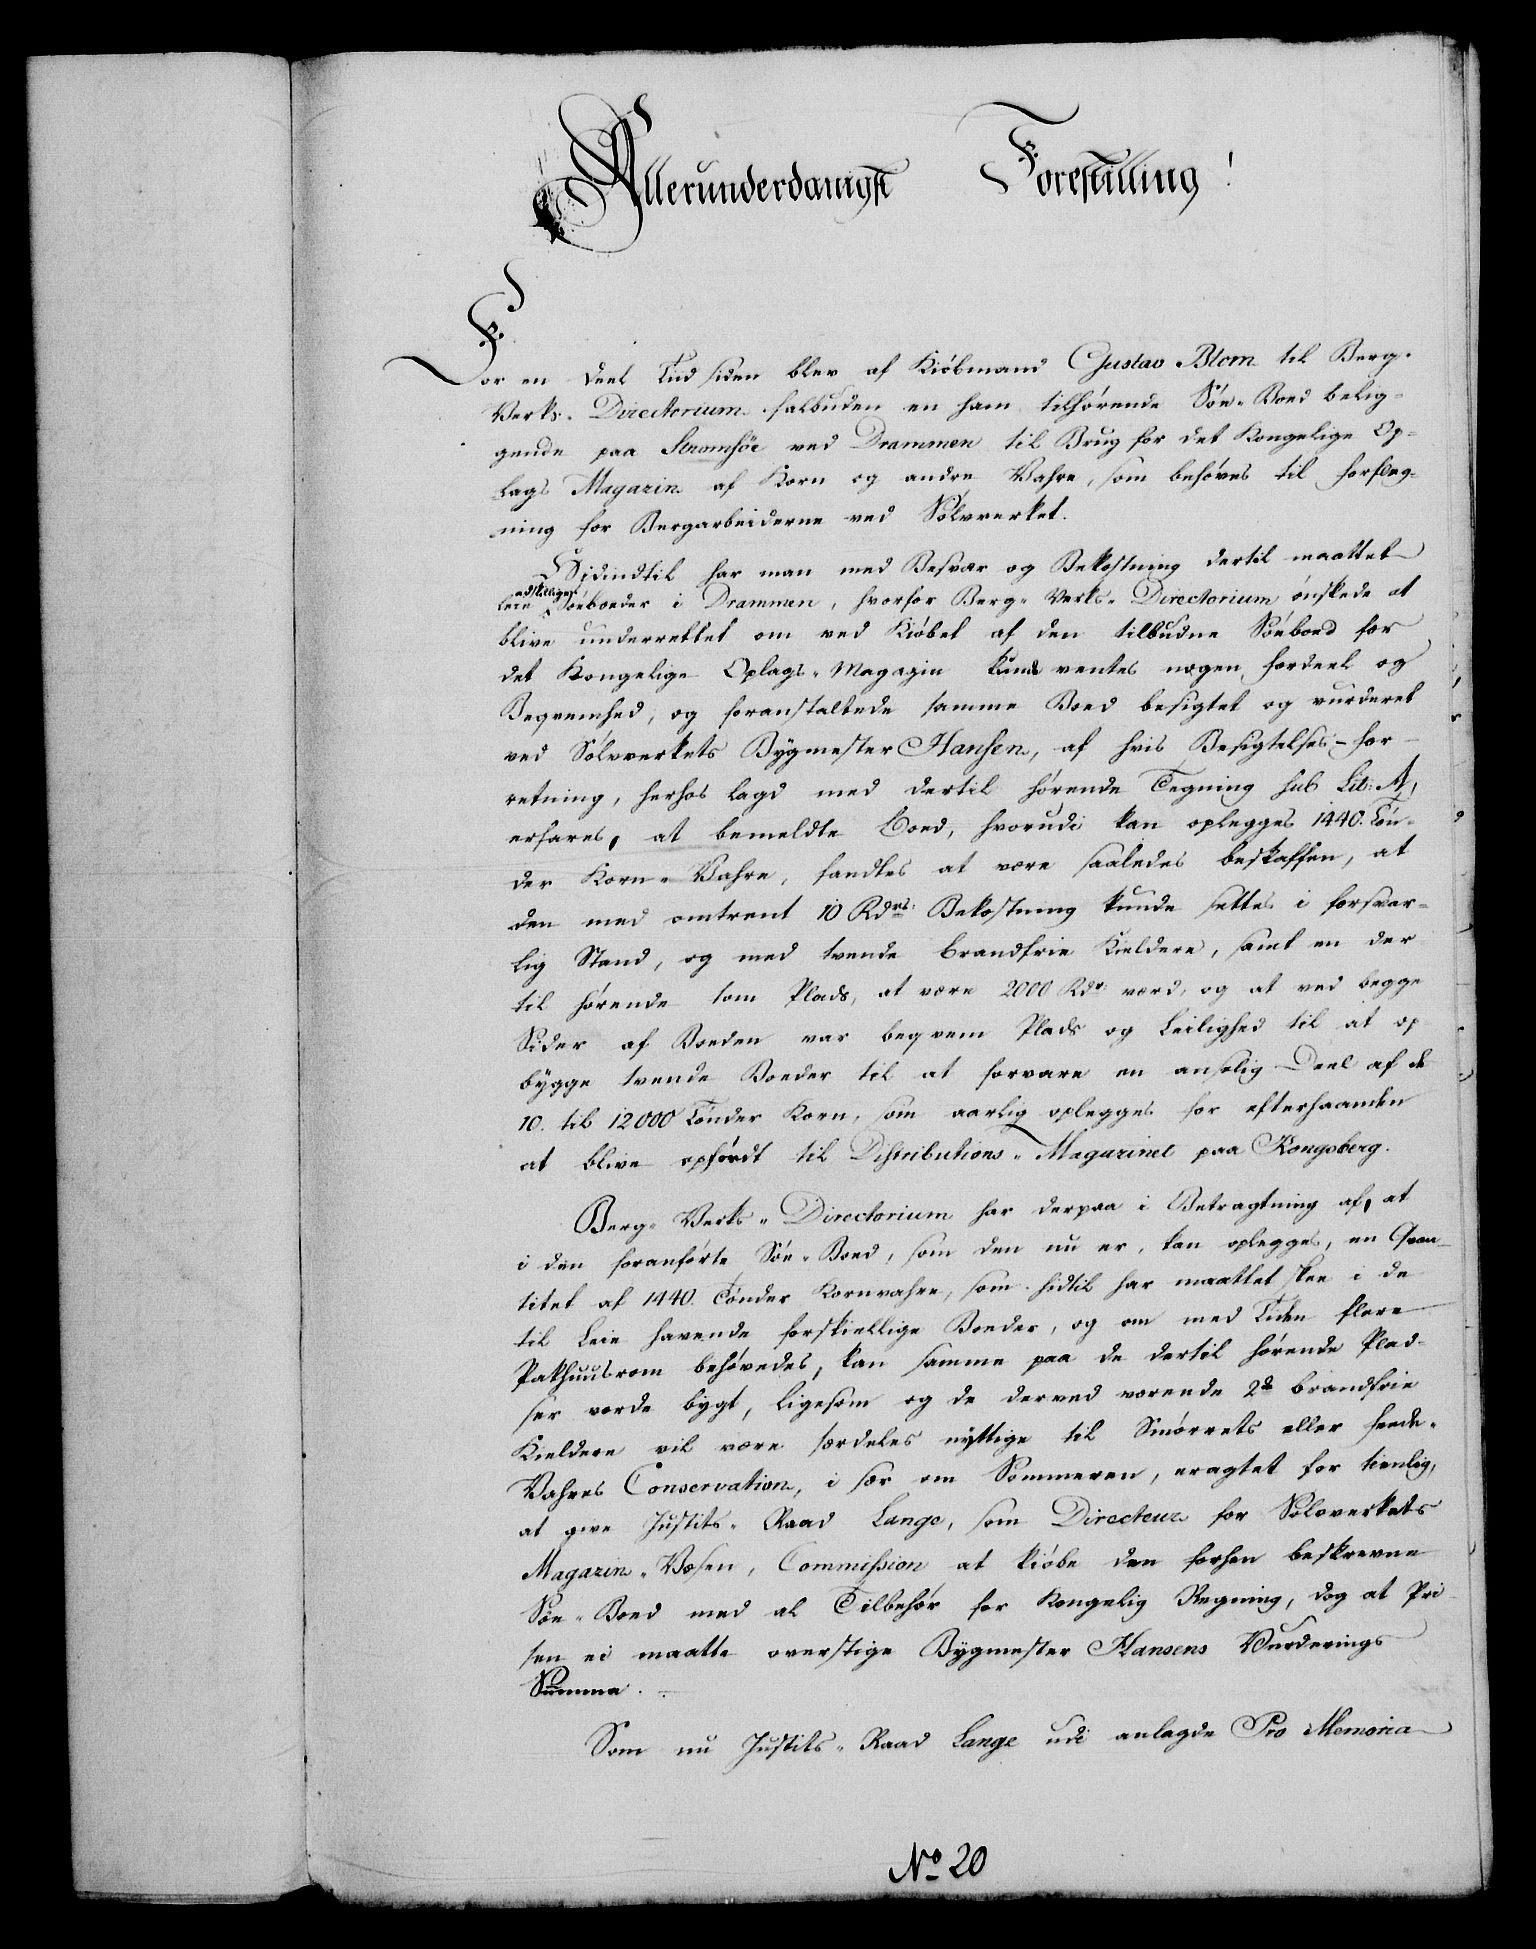 Allerunderdanigst Forestilling!
For en deel Tiid siden blev af Kiöbmand Gustav Blom til Berg-
Verks-Directorium falbuden en ham tilhörende Söe-Boed belig-
gende paa Strömsöe ved Drammen til Brug for det Kongelige Op-
lags Magazin af Korn og andre Vahre, som behöves til forsleg-
ning for Bergarbeiderne ved Sölvverket.
Hidindtil har man med Besvær og Bekostning dertil maattet
leie adskillige Söeboeder i Drammen, hvorfor Berg-Verks-Directorium önskede at
blive underrettet om ved Kiöbet af den tilbudne Söeboed for
det Kongelige Oplags-Magazin kunde ventes nogen fordeel og
Beqvemhed, og foranstaltede samme Boed besigtet og vurderet
ved Sölvverkets Bygmester Hansen, af hvis Besigtelses-for-
retning, herhos lagd med dertil hörende Tegning sub Lit: A,
erfares, at bemeldte Boed, hvorudi kan oplegges 1440. Tön-
der Korn-Vahre, fandtes at være saaledes beskaffen, at
den med omtrent 10 Rdrs: Bekostning kunde settes i forsvar-
lig Stand, og med tvende brandfrie Kieldere, samt en der
til hörende tom Plads, at være 2000 Rdr: værd, og at ved begge
Sider af Boeden var beqvem Plads og Leilighed til at op
bygge tvende Boeder til at forvare en anselig Deel af de
10. til 12000 Tönder Korn, som aarlig oplegges for efterhaanden
at blive opfördt til Distributions-Magazinet paa Kongsberg.
Berg-Verks-Directorium har derpaa i Betragtning af, at
i den foranförte Söe-Boed, som den nu er, kan oplegges, en Qvan-
titet af 1440. Tönder Kornvahre, som hidtil har maattet skee i de
til Leie havende forskiellige Boeder, og om med Tiden flere
Pakhuusrom behövedes, kan samme paa de dertil hörende Plad-
ser vorde bygt, ligesom og de derved værende 2de brandfrie
Kieldere vil være særdeles nyttige til Smörrets eller feede-
Vahres Conservation, i sær om Sommeren, eragtet for tienlig,
at give Justits-Raad Lange, som Directeur for Sölvverkets
Magazin-Væsen, Commission at kiöbe den forhen beskrevne
Söe-Boed med al Tilbehör for Kongelig Regning, dog at Pri-
sen ei maatte overstige Bygmester Hansens Vurderings
Summa.
Som nu Justits-Raad Lange udi anlagde Pro Memoria
No 20